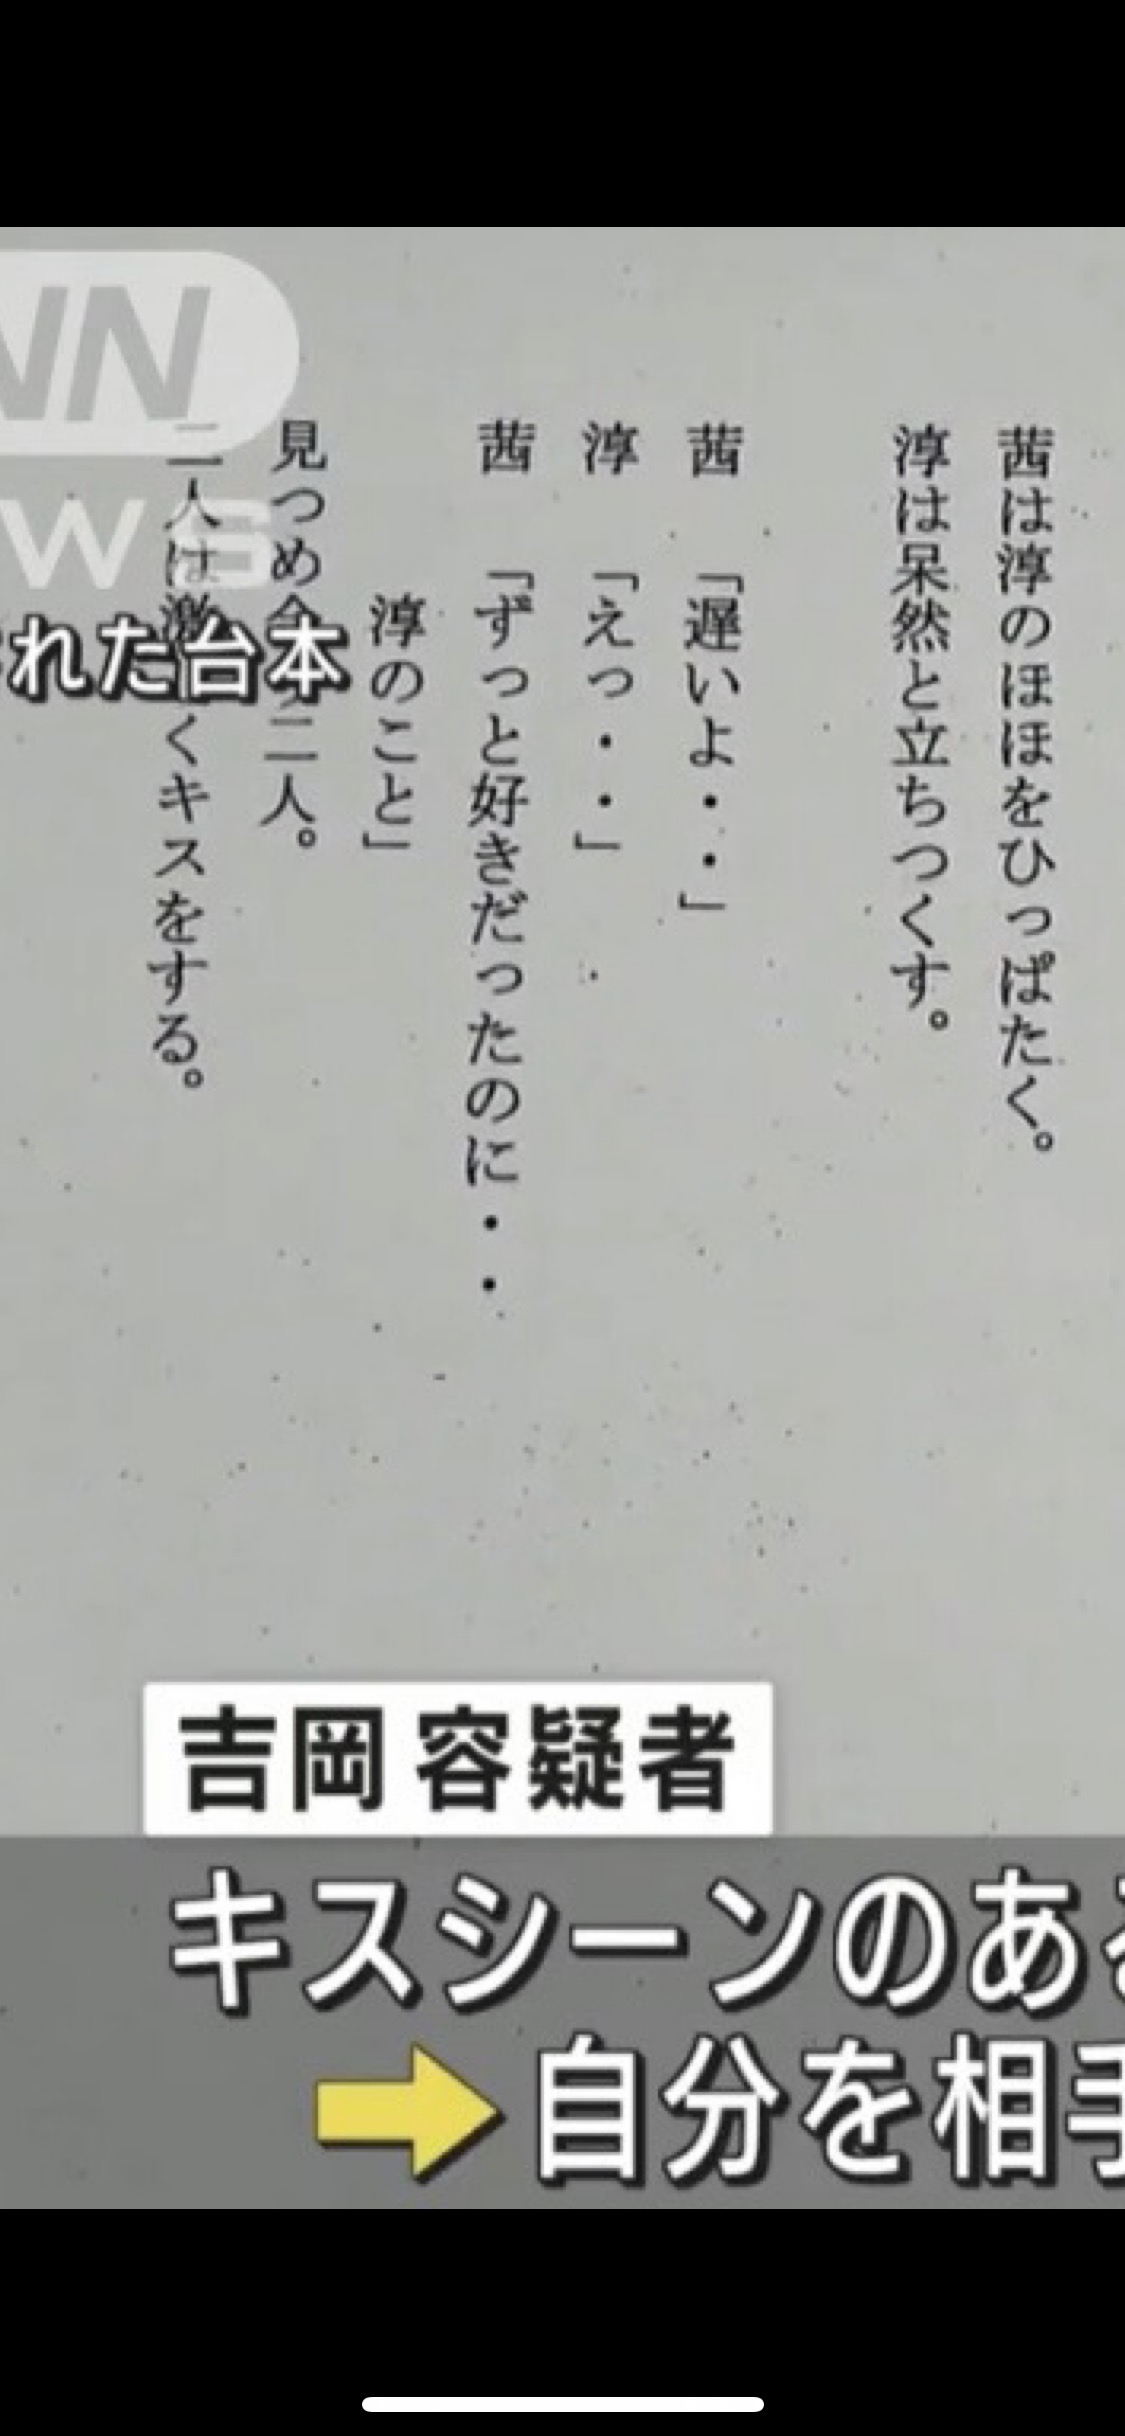 NN
NEWS
された台本
茜は淳のほほをひっぱたく。
淳は呆然と立ちつくす。
茜 「遅いよ・・」
淳 「えっ・・」
茜 「ずっと好きだったのに・・
淳のこと」
見つめ合 二人。
二人は激 くキスをする。
吉岡 容疑者
キスシーンのある
➡自分を相手